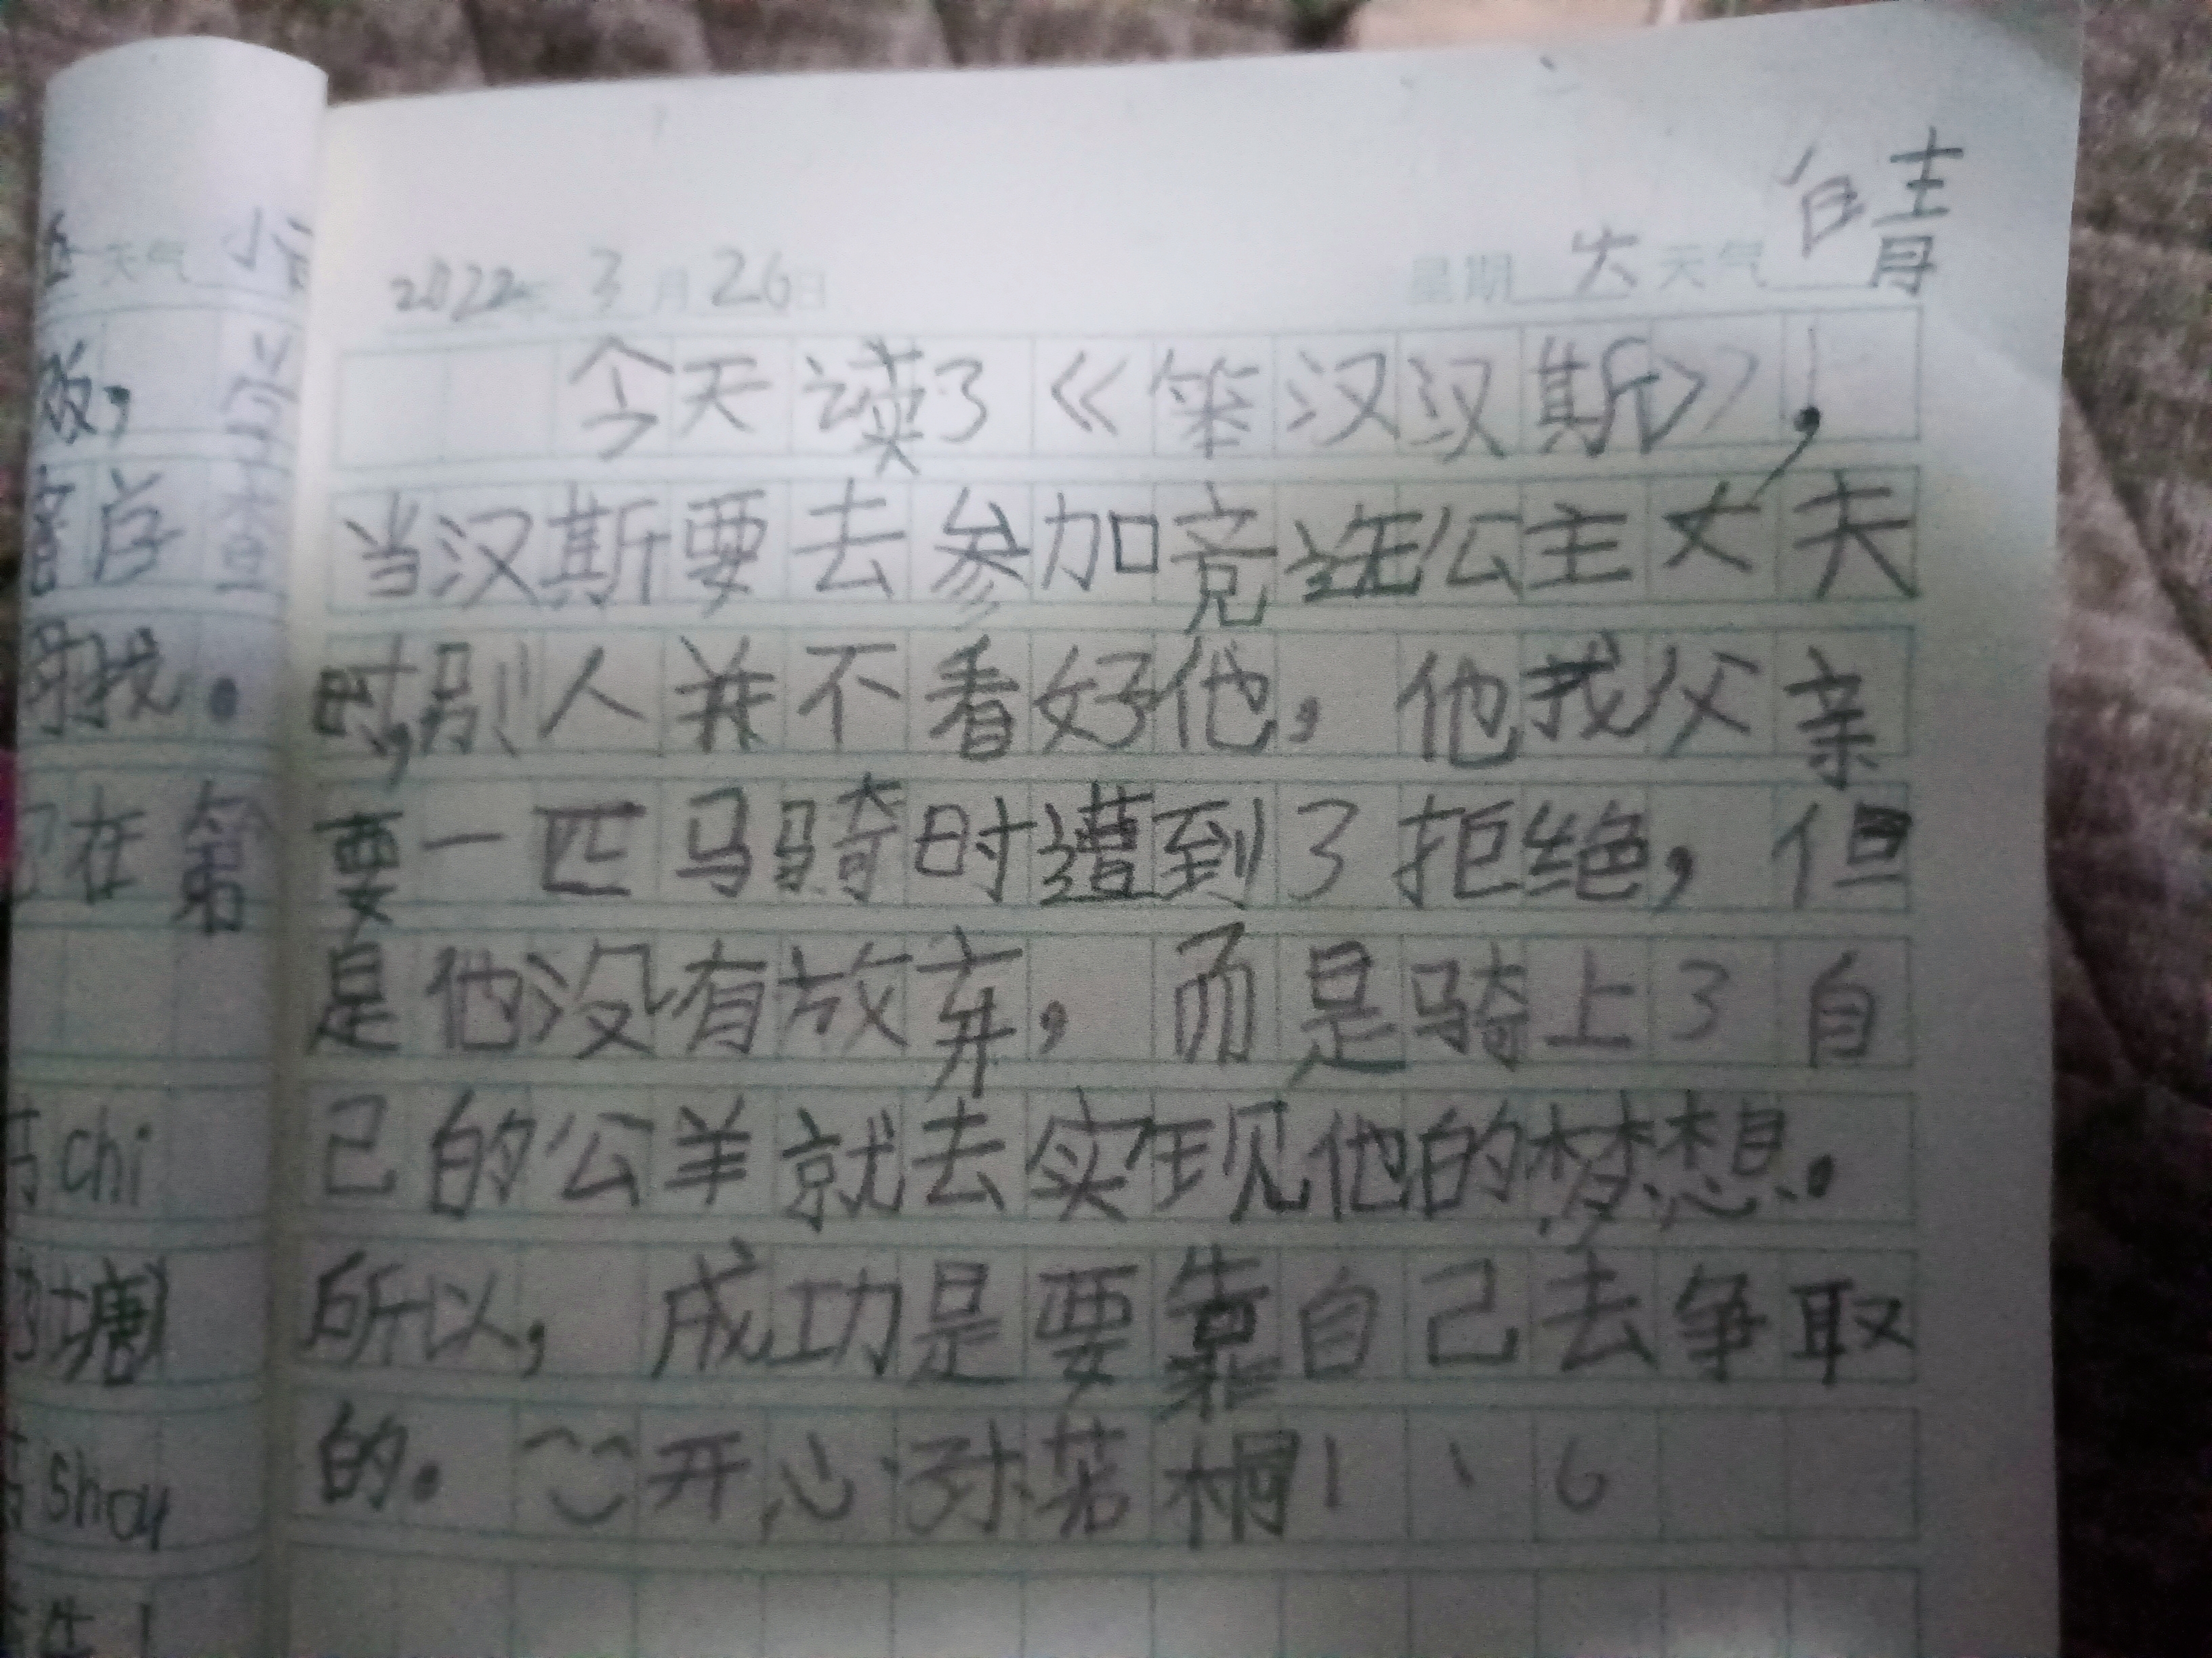 2022年3月26日 星期六 天气 晴
今天读了《笨汉汉斯》,
当汉斯要去参加竞选公主丈夫
时,别人并不看好他,他找父亲
要一匹马骑时遭到了拒绝,但
是他没有放弃,而是骑上了自
己的公羊就去实现他的梦想。
所以,成功是要靠自己去争取
的。开心 孙若桐
天气
在第
chi
塘
shou